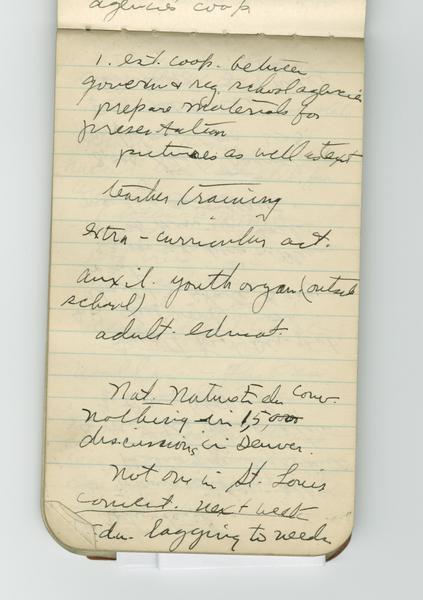 agencies coop
1. est. coop. between
governm & reg. school agencies
prepare materials for
presentation
pictures as well as text
teacher training
extra-curricular act.
auxil. youth organ (outside
school)
adult educat.
Nat. Nature Edu conv.
nothing in 1,500
discussions in Denver.
Not one in St. Louis
convent. next week
Edu. lagging to needs